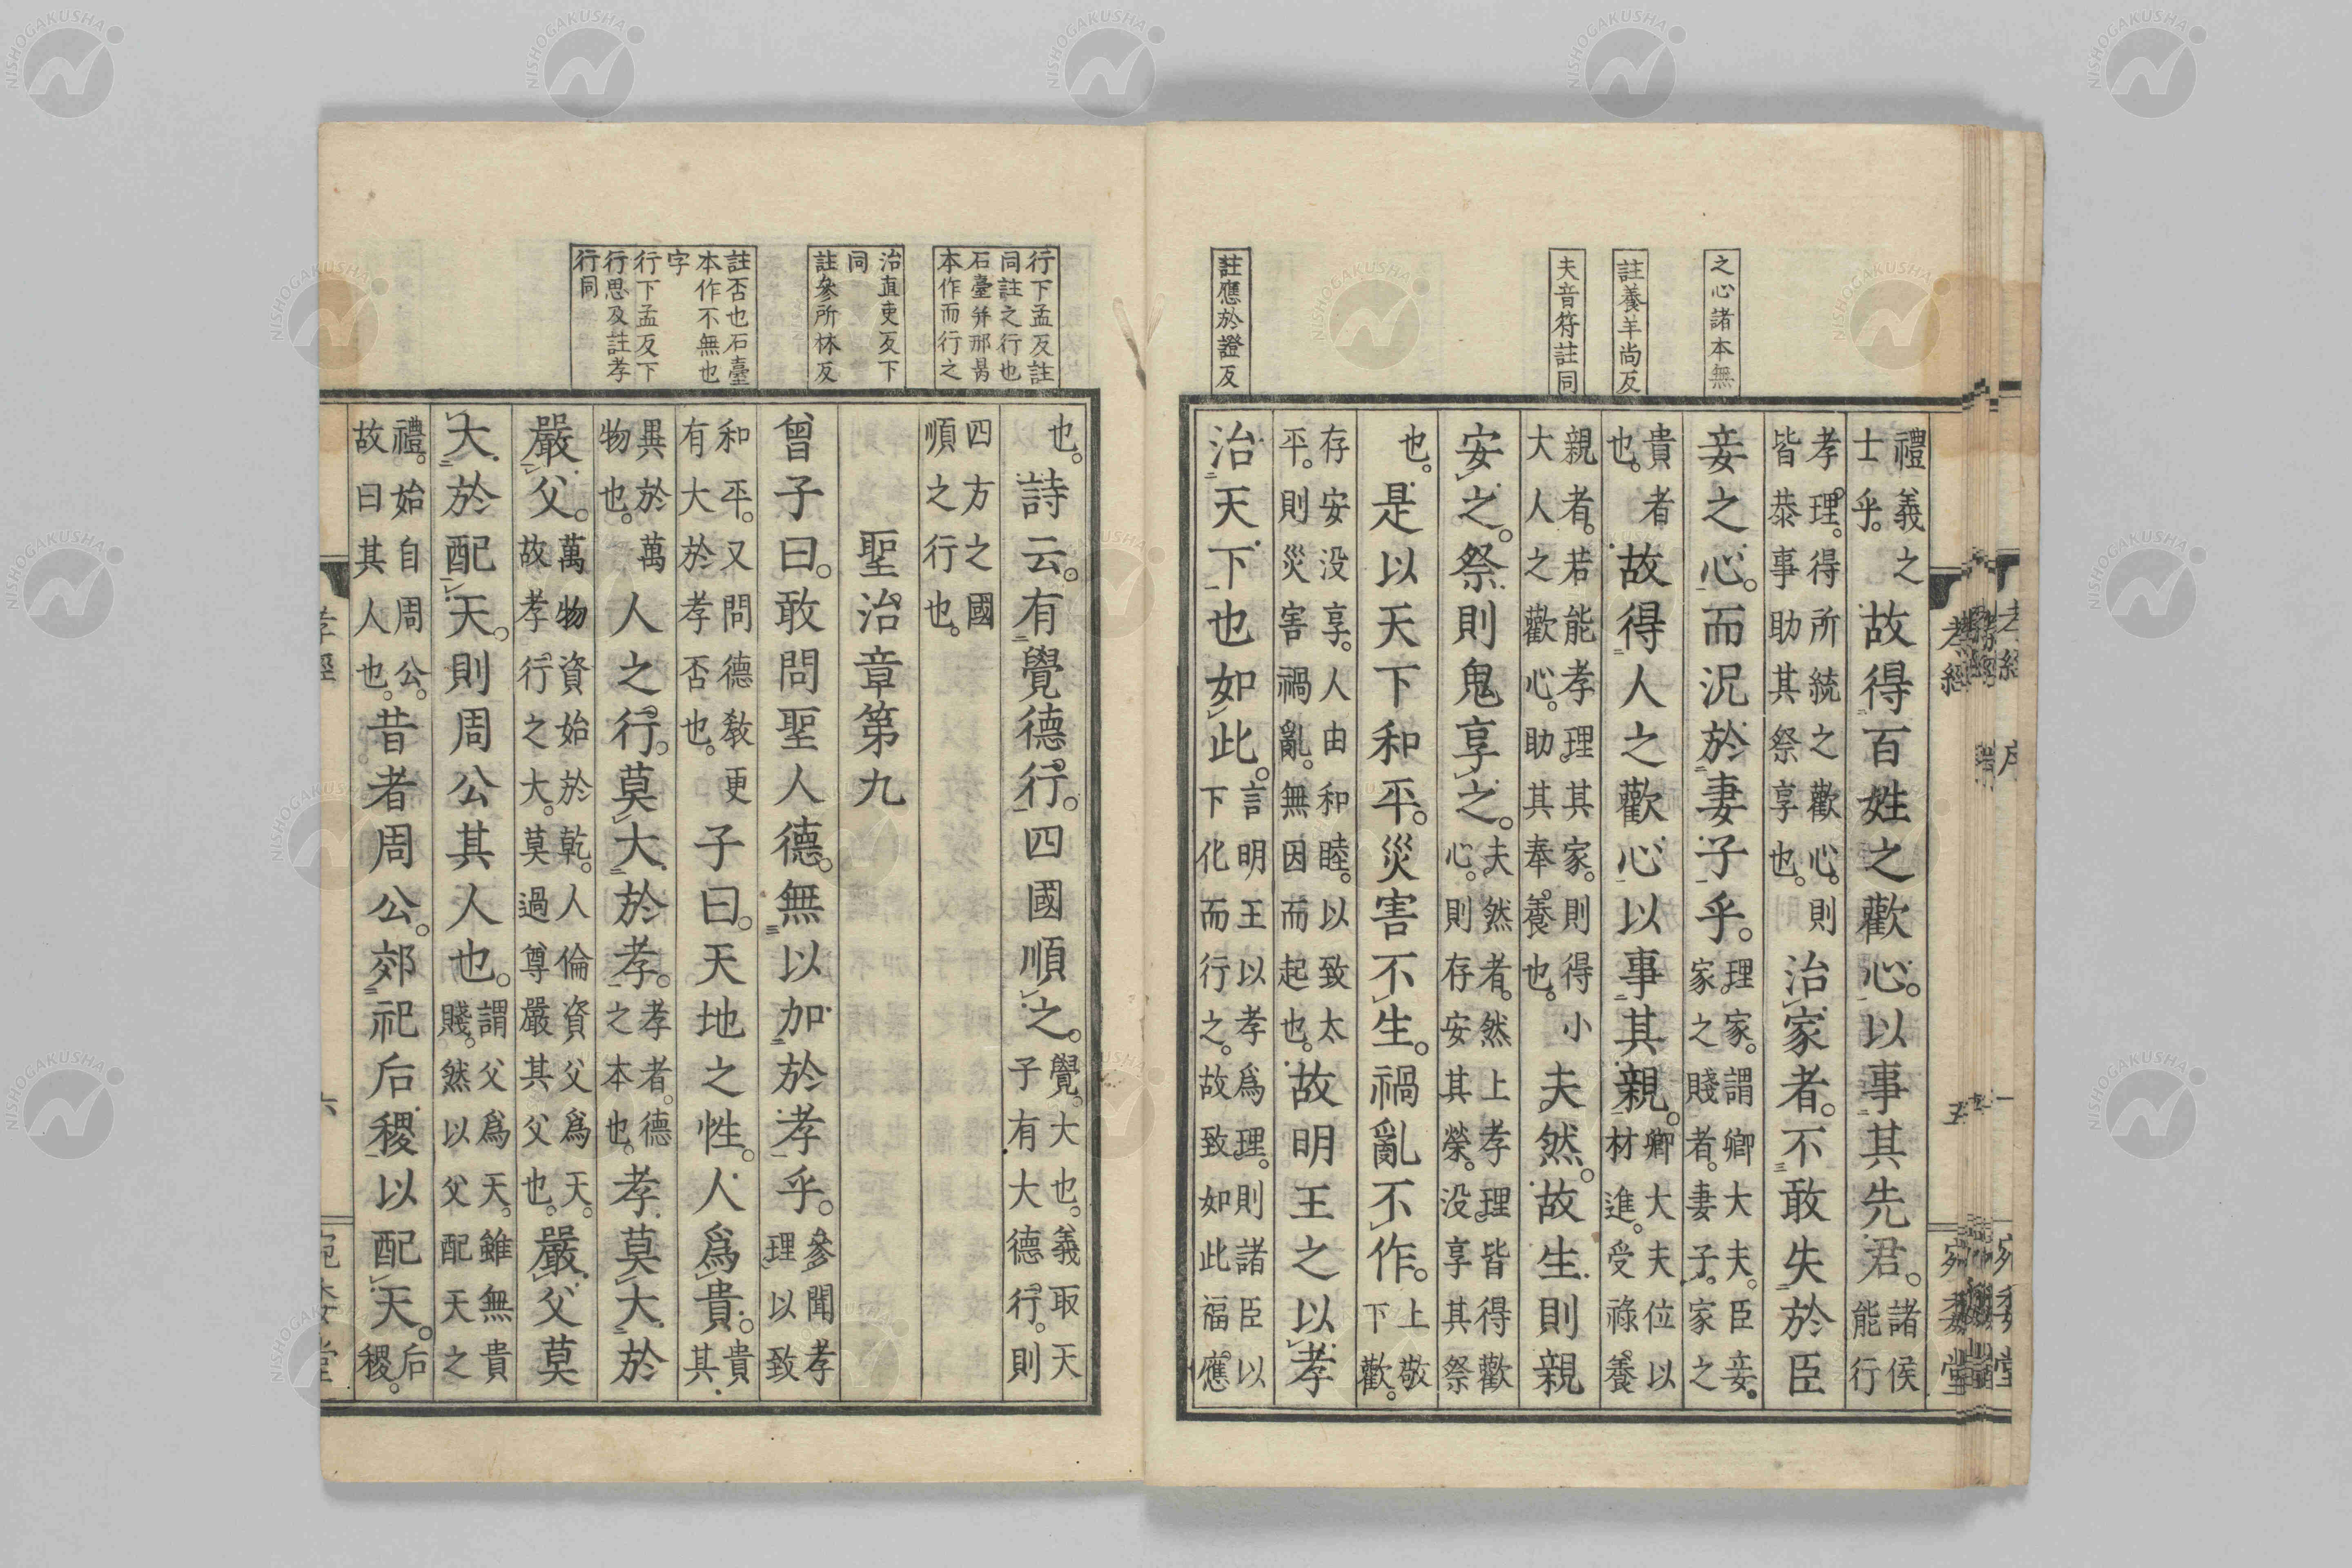 之心諸本無
註養羊尚反
夫音符註同
註應於證反
禮義之士乎。故得百姓之歡心。以事其先君。諸侯能行
孝理。得所統之歡心。則皆恭事助其祭享也。治家者。不敢失於臣
妾之心。而況於妻子乎。理家。謂卿大夫。臣妾。家之賤者。妻子。家之
貴者也。故得人之歡心以事其親。卿大夫位以材進。受祿養
親者。若能孝理其家。則得小大人之歡心。助其奉養也。夫然。故生則親
安之。祭則鬼享之。夫然者。然上孝理皆得歡心。則存安其榮。没享其祭
也。是以天下和平。災害不生。禍亂不作。上敬下歡。
存安没享。人由和睦。以致太平。則災害禍亂。無因而起也。故明王之以孝
治天下也如此。言明王以孝爲理。則諸臣以下化而行之。故致如此福應
孝經
五
行下孟反註
同註之行也
石臺幷那昺
本作而行之
治直吏反下
同
註參所林反
註否也石臺
本作不無也
字
行下孟反下
行思及註孝
行同
也。詩云。有覺德行。四國順之。覺。大也。義取天子有大德行。則
四方之國順之行也。
聖治章第九
曾子曰。敢問聖人德。無以加於孝乎。參聞孝理以致
和平。又問德教更有大於孝否也。子曰。天地之性。人爲貴。貴其
異於萬物也。人之行。莫大於孝。孝者。德之本也。孝莫大於
嚴父。萬物資始於乾。人倫資父爲天。故孝行之大。莫過尊嚴其父也。嚴父莫
大於配天。則周公其人也。謂父爲天。雖無貴賤。然以父配天之
禮。始自周公。故曰其人也。昔者周公。郊祀后稷以配天。后稷。
孝經
六